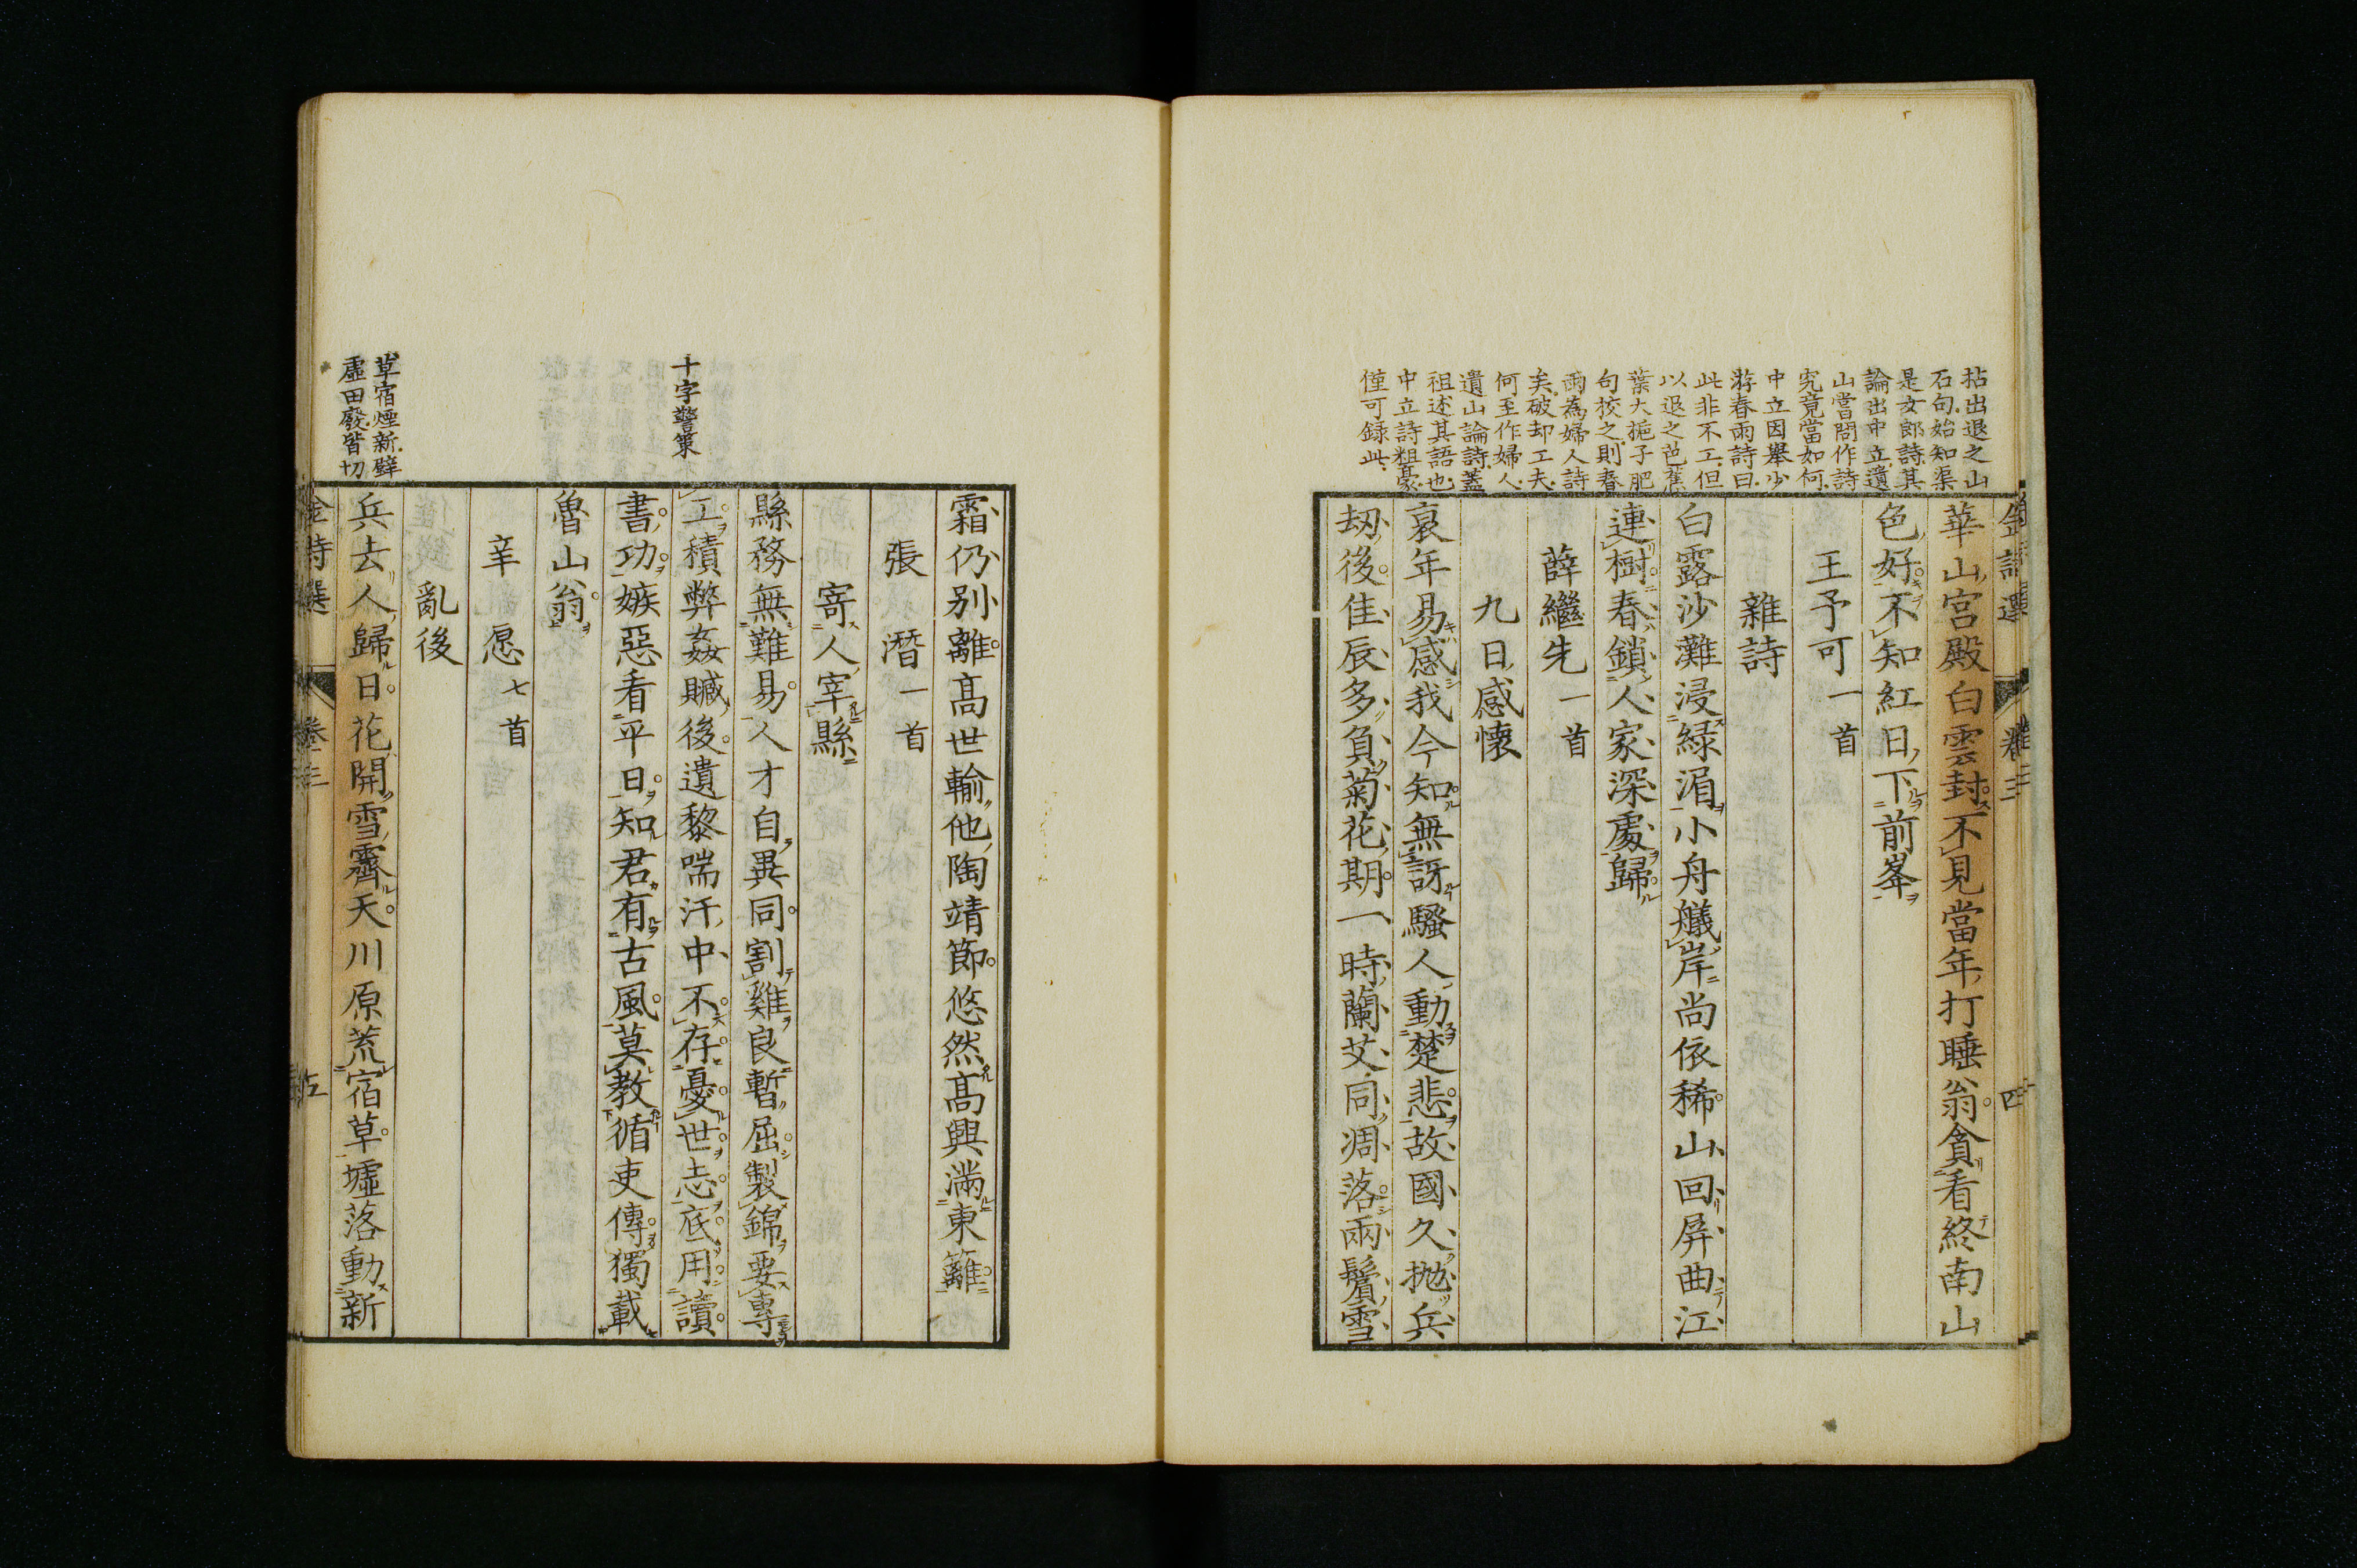 拈出退之山
石句始知渠
是女郎詩其
論出中立遺
山嘗問作詩
究竟當如何
中立因舉少
游春雨詩曰
此非不工但
以退之芭蕉
葉大梔子肥
句挍之則春
雨為婦人詩
矣破却工夫
何至作婦人
遺山論詩蓋
祖述其語也
中立詩粗豪
僅可録此
金詩選 卷三 四
華山宮殿白雲封不見當年打睡翁貪看終南山
色好不知紅日下前峯
王予可一首
雜詩
白露沙灘浸綠湄小舟艤岸尚依稀山回屏曲江
連樹春鎖人家深處歸
薛繼先一首
九日感懷
衰年易感我今知無訝騷人動楚悲故國久抛兵
劫後佳辰多負菊花期一時蘭艾同凋落兩鬢雪
霜仍別離高世輸他陶靖節悠然高興滿東籬
張潛一首
寄人宰縣
十字警策
縣務無難易人才自異同割雞良暫屈製錦要專
工積弊姦贓後遺黎喘汗中不存憂世志底用讀
書功嫉惡看平日知君有古風莫教循吏傳獨載
魯山翁
辛愿七首
亂後
草宿煙新壁
虛田廢皆切
兵去人歸日花開雪霽天川原荒宿草墟落動新
金詩選 卷三 五